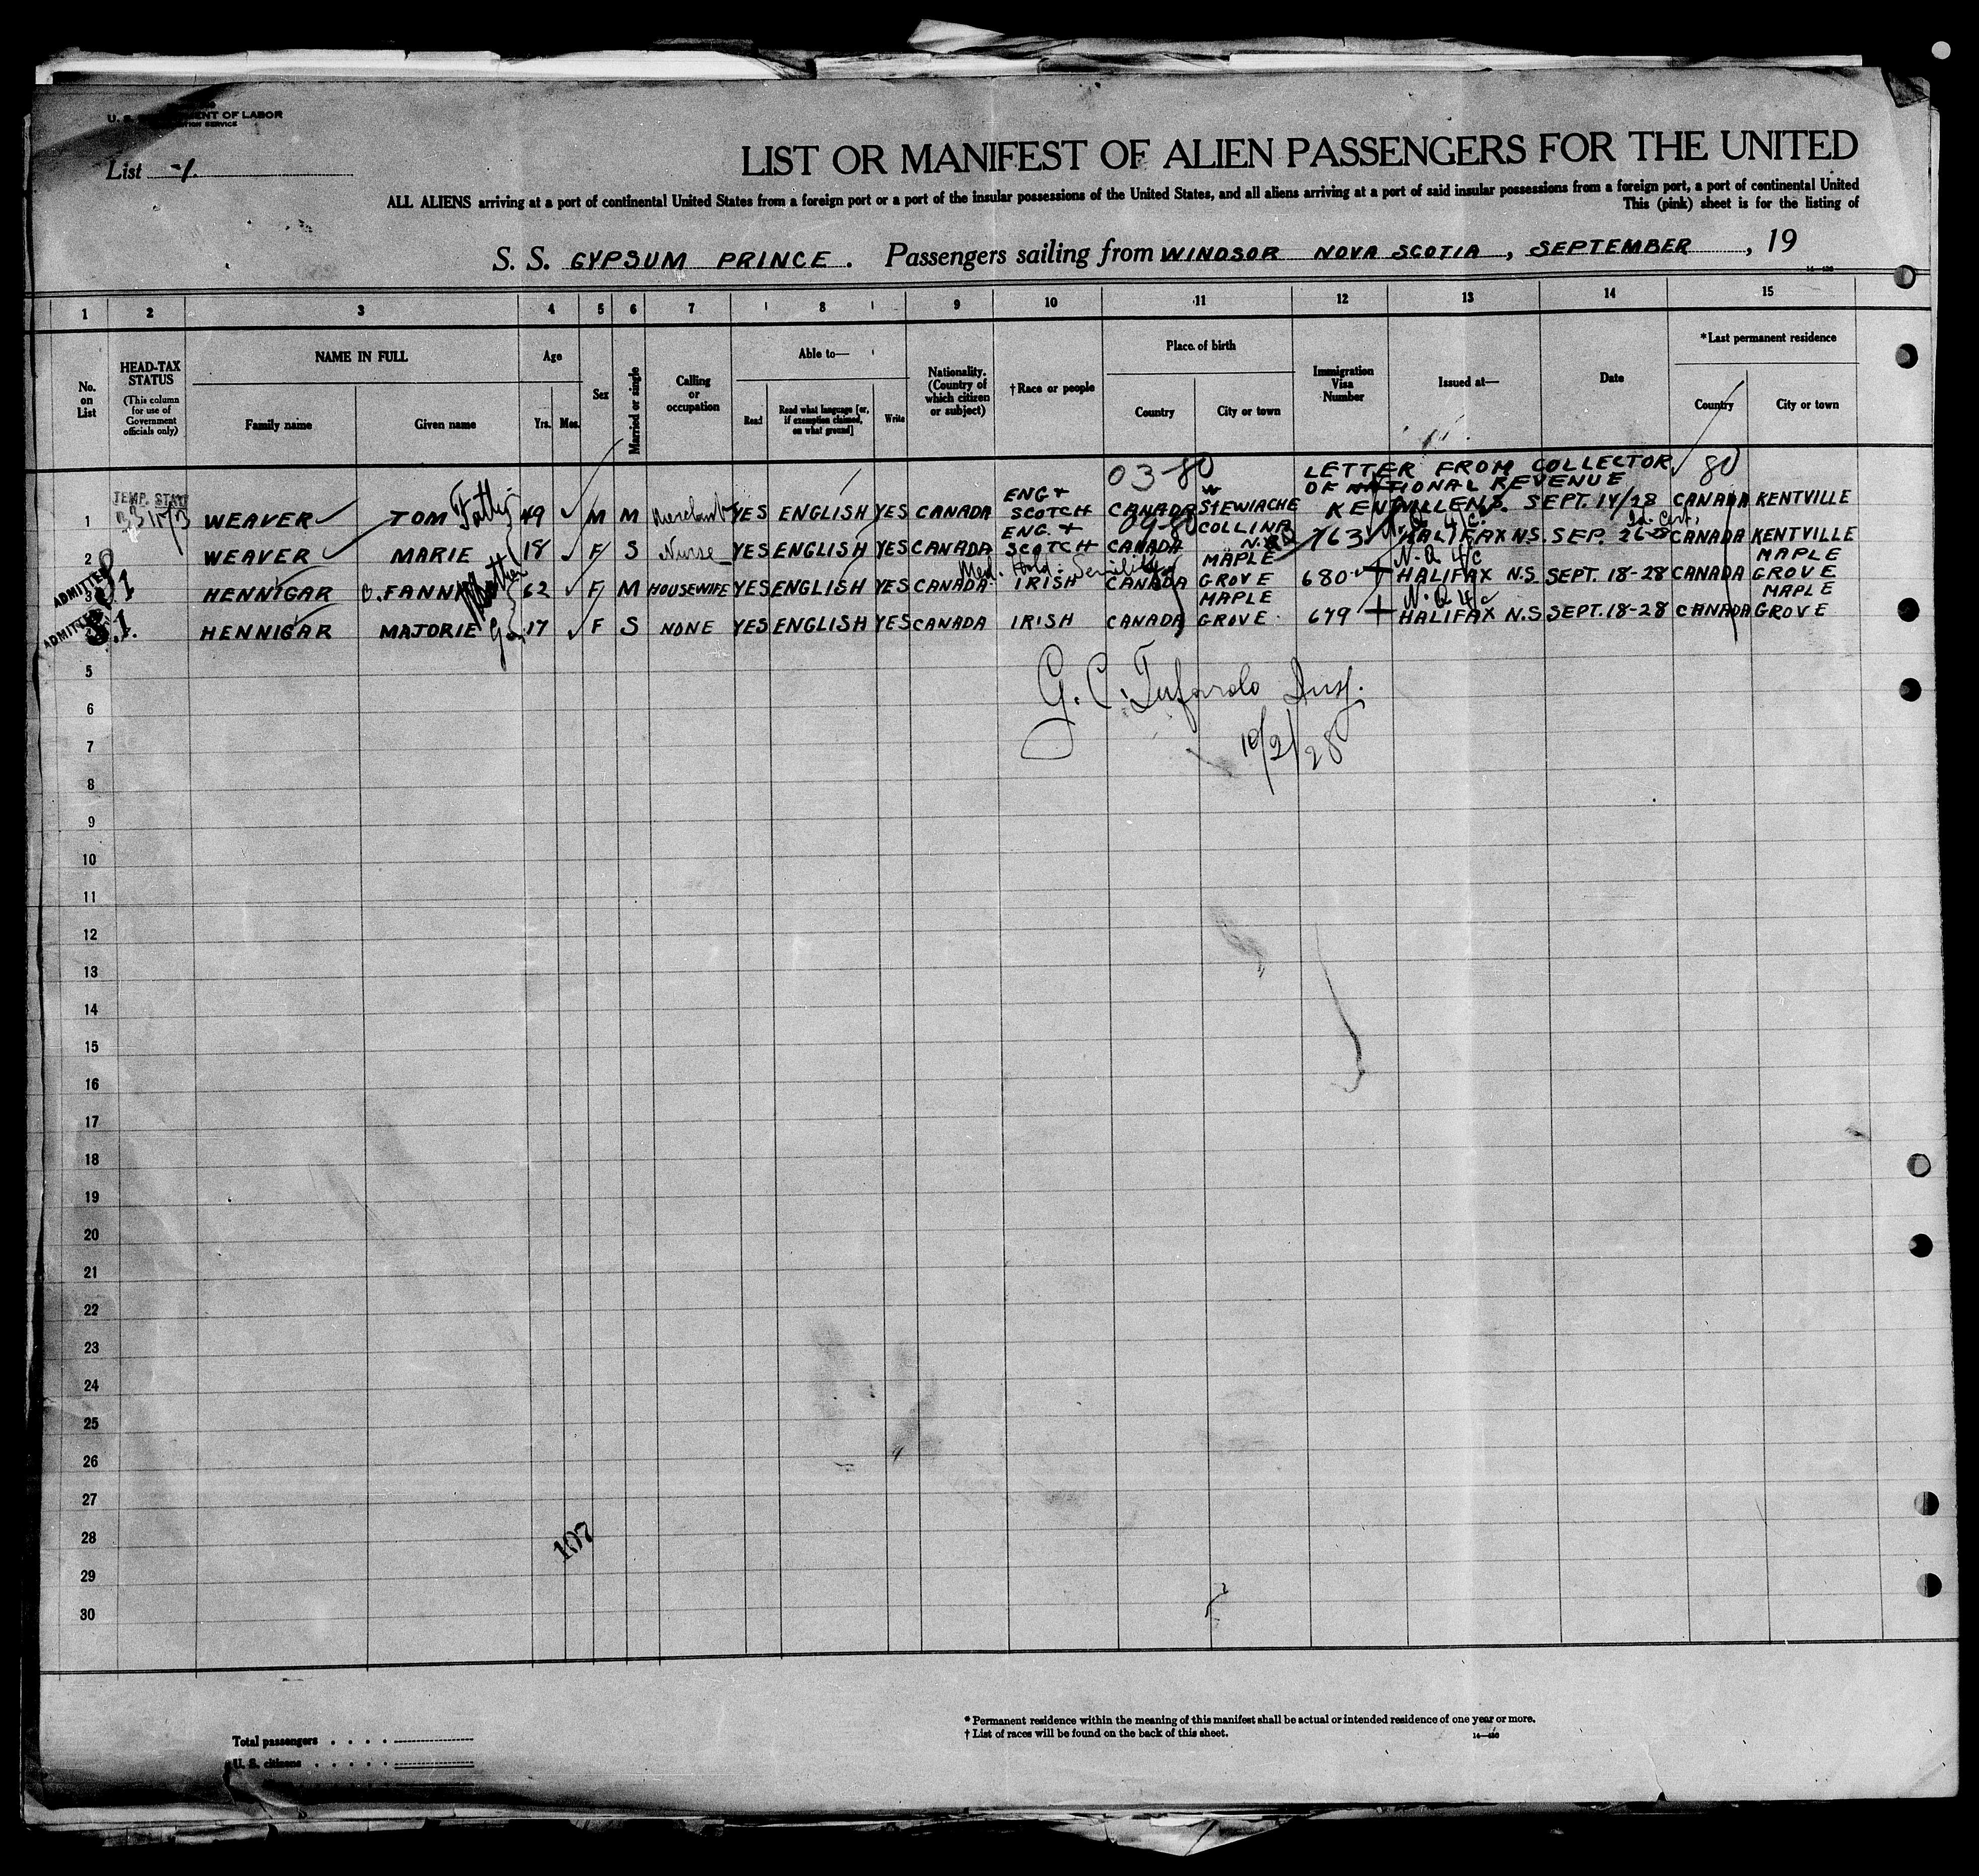 U. S. DEPARTMENT OF LABOR
IMMIGRATION SERVICE
List 1.
LIST OR MANIFEST OF ALIEN PASSENGERS FOR THE UNITED
ALL ALIENS arriving at a port of continental United States from a foreign port or a port of the insular possessions of the United States, and all aliens arriving at a port of said insular possessions from a foreign port, a port of continental United
This (pink) sheet is for the listing of
S. S. GYPSUM PRINCE. Passengers sailing from WINDSOR NOVA SCOTIA, SEPTEMBER, 19
14—430
1 2 3 4 5 6 7 8 9 10 11 12 13 14 15
No. on List
HEAD-TAX STATUS (This column for use of Government officials only)
NAME IN FULL Family name Given name
Age Yrs. Mos.
Sex
Married or single
Calling or occupation
Able to— Read Read what language [or, if exemption claimed, on what ground] Write
Nationality. (Country of which citizen or subject)
†Race or people
Place of birth Country City or town
Immigration Visa Number
Issued at—
Date
*Last permanent residence Country City or town
03-80 LETTER FROM COLLECTOR 80
OF NATIONAL REVENUE
1 TEMP. STAY WEAVER TOM Father 49 M M Merchant YES ENGLISH YES CANADA ENG + SCOTCH CANADA W STEWIACHE KENTVILLE N.S. SEPT. 14/28 CANADA KENTVILLE
2 WEAVER MARIE 18 F S Nurse YES ENGLISH YES CANADA ENG. + SCOTCH CANADA COLLINA N.B. 763 HALIFAX N.S. SEP. 26-28 CANADA KENTVILLE
Med. Hold. Senility
3 ADMITTED SI HENNIGAR FANNY Mother 62 F M HOUSEWIFE YES ENGLISH YES CANADA IRISH CANADA MAPLE GROVE 680 HALIFAX N.S SEPT. 18-28 CANADA MAPLE GROVE
4 ADMITTED S.I. HENNIGAR MAJORIE 17 F S NONE YES ENGLISH YES CANADA IRISH CANADA MAPLE GROVE 679 HALIFAX N.S SEPT. 18-28 CANADA MAPLE GROVE
5
6
7
10/2/28
8
9
10
11
12
13
14
15
16
17
18
19
20
21
22
23
24
25
26
27
28
107
29
30
* Permanent residence within the meaning of this manifest shall be actual or intended residence of one year or more.
† List of races will be found on the back of this sheet.
14—430
Total passengers
U. S. citizens